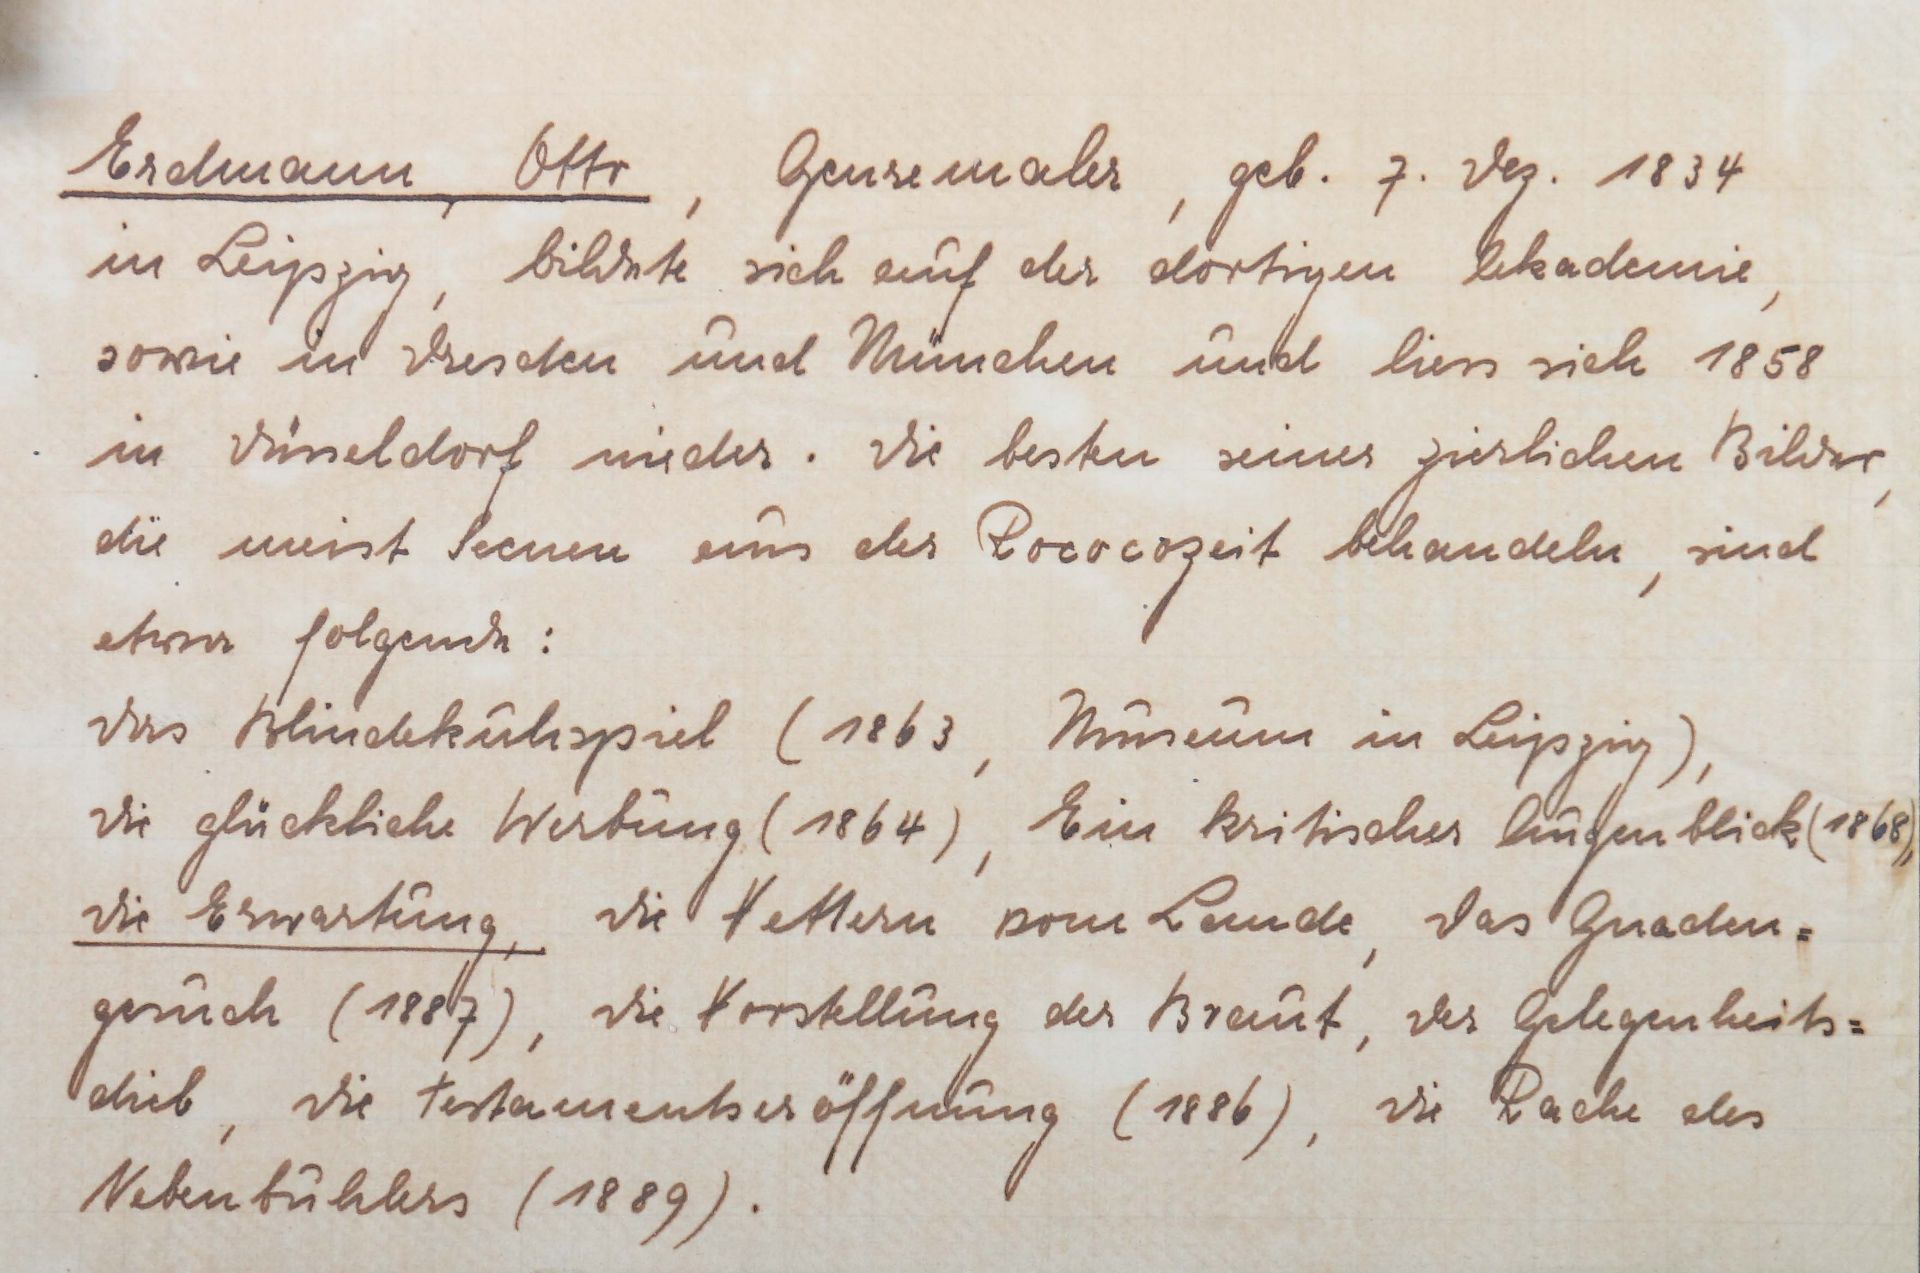 Erdmann, Otto, Genremaler, geb. 7. Dez. 1834
in Leipzig, bildete sich auf der dortigen Akademie,
sowie in Dresden und München und liess sich 1858
in Düsseldorf nieder. Die besten seiner zierlichen Bilder,
die meist Scenen aus der Rococozeit behandeln, sind
etwa folgende:
Das Blindekuhspiel (1863, Museum in Leipzig),
Die glückliche Werbung (1864), Ein kritischer Augenblick (1868),
Die Erwartung, Die Vettern vom Lande, Das Gnaden=
gesuch (1887), Die Vorstellung der Braut, Der Gelegenheits=
dieb, Die Testamentseröffnung (1886), Die Rache des
Nebenbuhlers (1889).